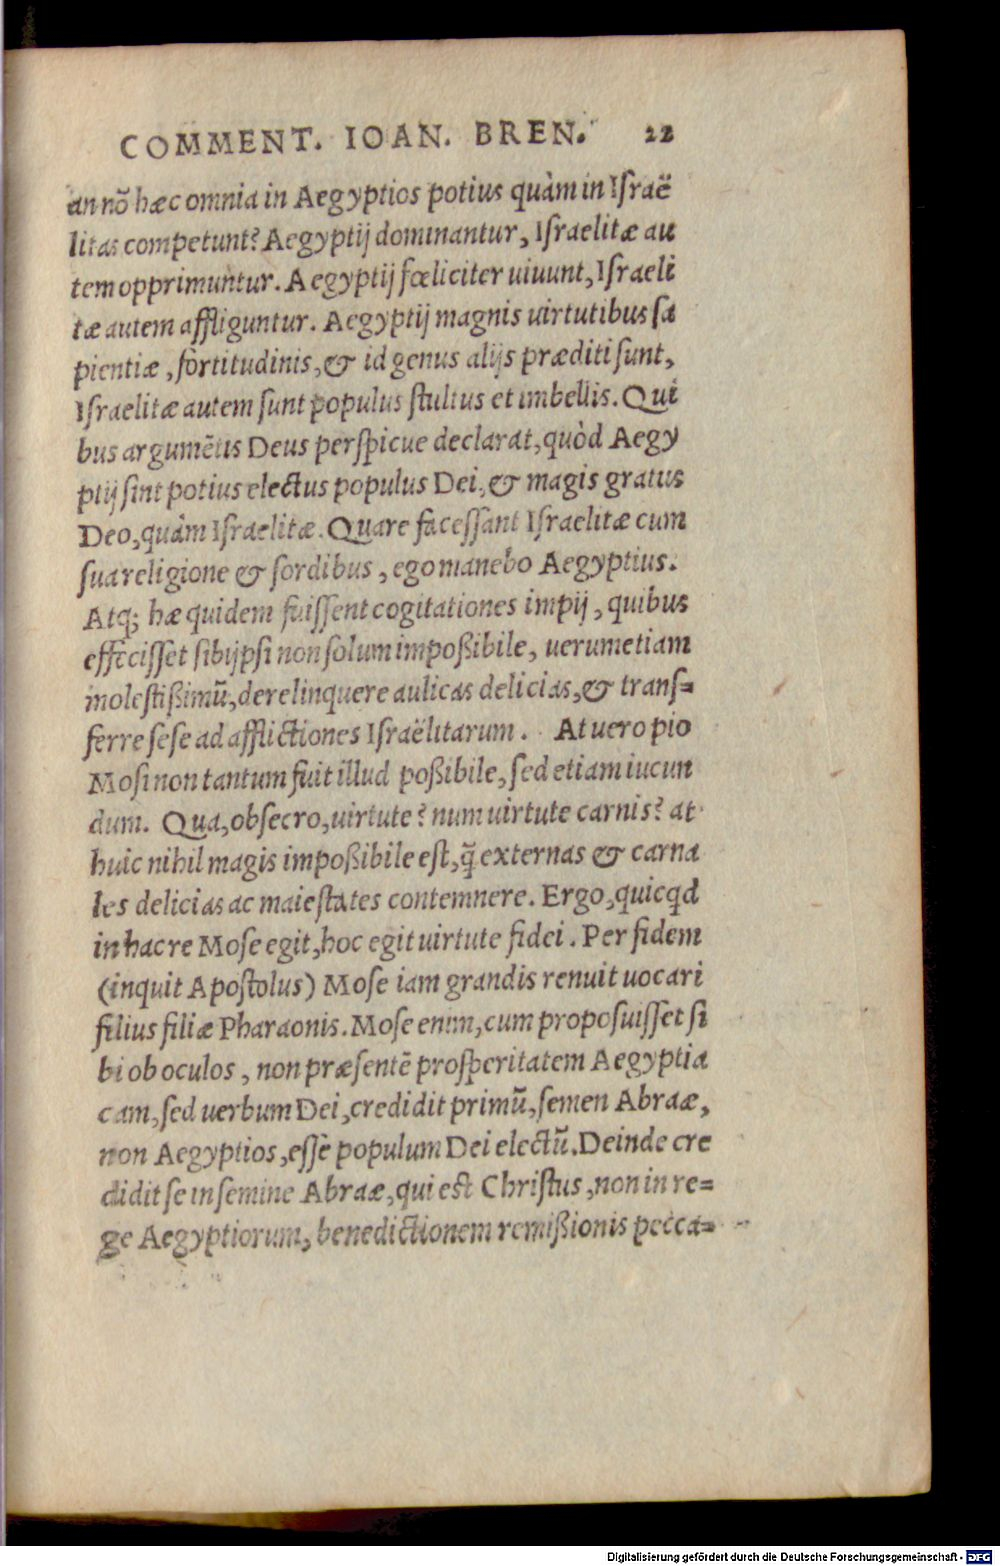 COMMENT. IOAN. BREN. 22
an nõ hæc omnia in Aegyptios potius quàm in Iſraë
litas competunt? Aegyptij dominantur, Iſraelitæ au
tem opprimuntur. Aegyptij fœliciter uiuunt, Iſraeli
tæ autem affliguntur. Aegyptij magnis uirtutibus ſa
pientiæ, fortitudinis, & id genus alijs præditi ſunt,
Iſraelitæ autem ſunt populus ſtultus et imbellis. Qui
bus argumẽtis Deus perſpicue declarat, quòd Aegy
ptij ſint potius electus populus Dei, & magis gratus
Deo, quàm Iſraelitæ. Quare faceſſant Iſraelitæ cum
ſua religione & ſordibus, ego manebo Aegyptius.
Atq; hæ quidem fuiſſent cogitationes impij, quibus
effeciſſet ſibijpſi non ſolum impoßibile, uerumetiam
moleſtißimũ, derelinquere aulicas delicias, & tranſ=
ferre ſeſe ad afflictiones Iſraëlitarum. At uero pio
Moſi non tantum fuit illud poßibile, ſed etiam iucun
dum. Qua, obſecro, uirtute? num uirtute carnis? at
huic nihil magis impoßibile eſt, q̃ externas & carna
les delicias ac maieſtates contemnere. Ergo, quicqd
in hac re Moſe egit, hoc egit uirtute fidei. Per fidem
(inquit Apoſtolus) Moſe iam grandis renuit uocari
filius filiæ Pharaonis. Moſe enim, cum propoſuiſſet ſi
bi ob oculos, non præſentẽ proſperitatem Aegyptia
cam, ſed uerbum Dei, credidit primũ, ſemen Abraæ,
non Aegyptios, eſſe populum Dei electũ. Deinde cre
didit ſe in ſemine Abraæ, qui eſt Chriſtus, non in re=
ge Aegyptiorum, benedictionem remißionis pecca=
Digitalisierung gefördert durch die Deutsche Forschungsgemeinschaft - DFG